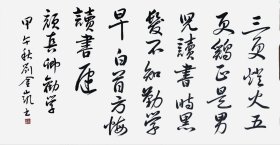 三更燈火五
更鷄正是男
兒讀書時黑
髮不知勤學
早白首方悔
讀書遲
顔真卿勸学
甲午秋